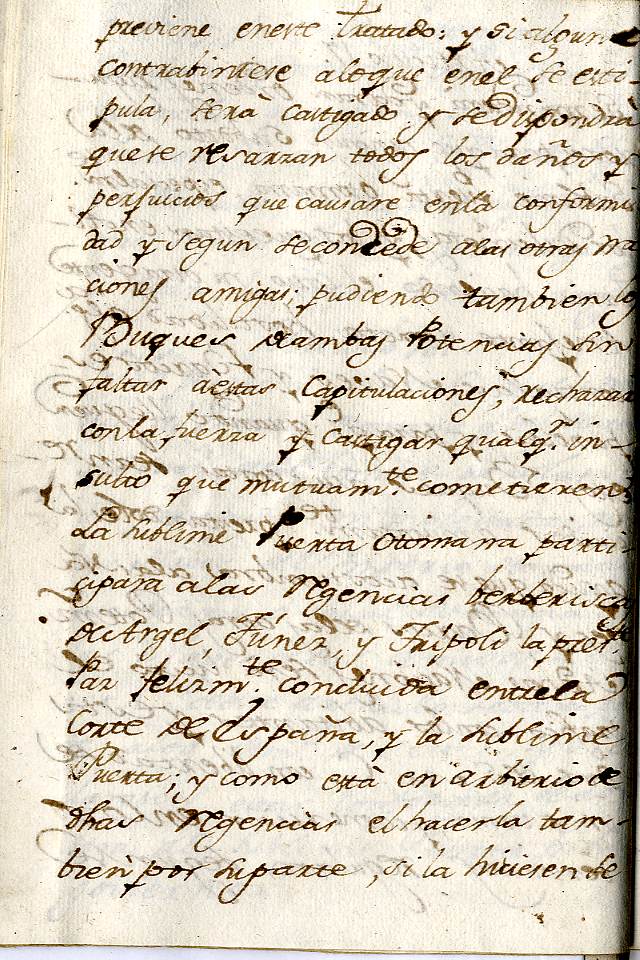 previene eneste tratado: y si alguno
contrabiniese aloque enel se esti-
pula, será castigado y sedispondrà
quese resarzan todos los daños y
perjuicios que causare enla conformi
dad y segun seconcede alas otras na
ciones amigas; pudiendo tambien los
Buques deambas Potencias sin
faltar aestas Capitulaciones, rechazar
conla fuerza y castigar qualq.r in-
sulto que mutuam.te cometieren
La sublime Puerta Otomana parti-
cipara alas Regencias berberiscas
deArgel, Túnez, y Trípoli la pres.te
Paz felizm.te concluida entrela
Corte de España, y la sublime
Puerta; y como està en arbitrio de
dhas Regencias elhacerla tam-
bien por suparte, si la hiciesen se